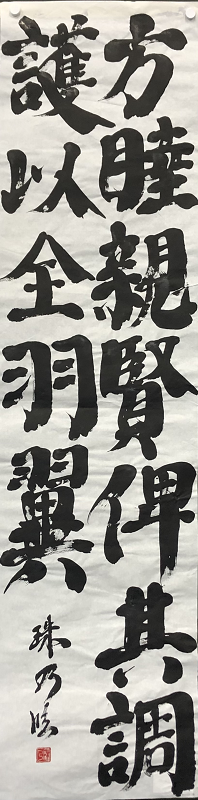 方睦親賢俾其調
護以全羽翼
珠乃